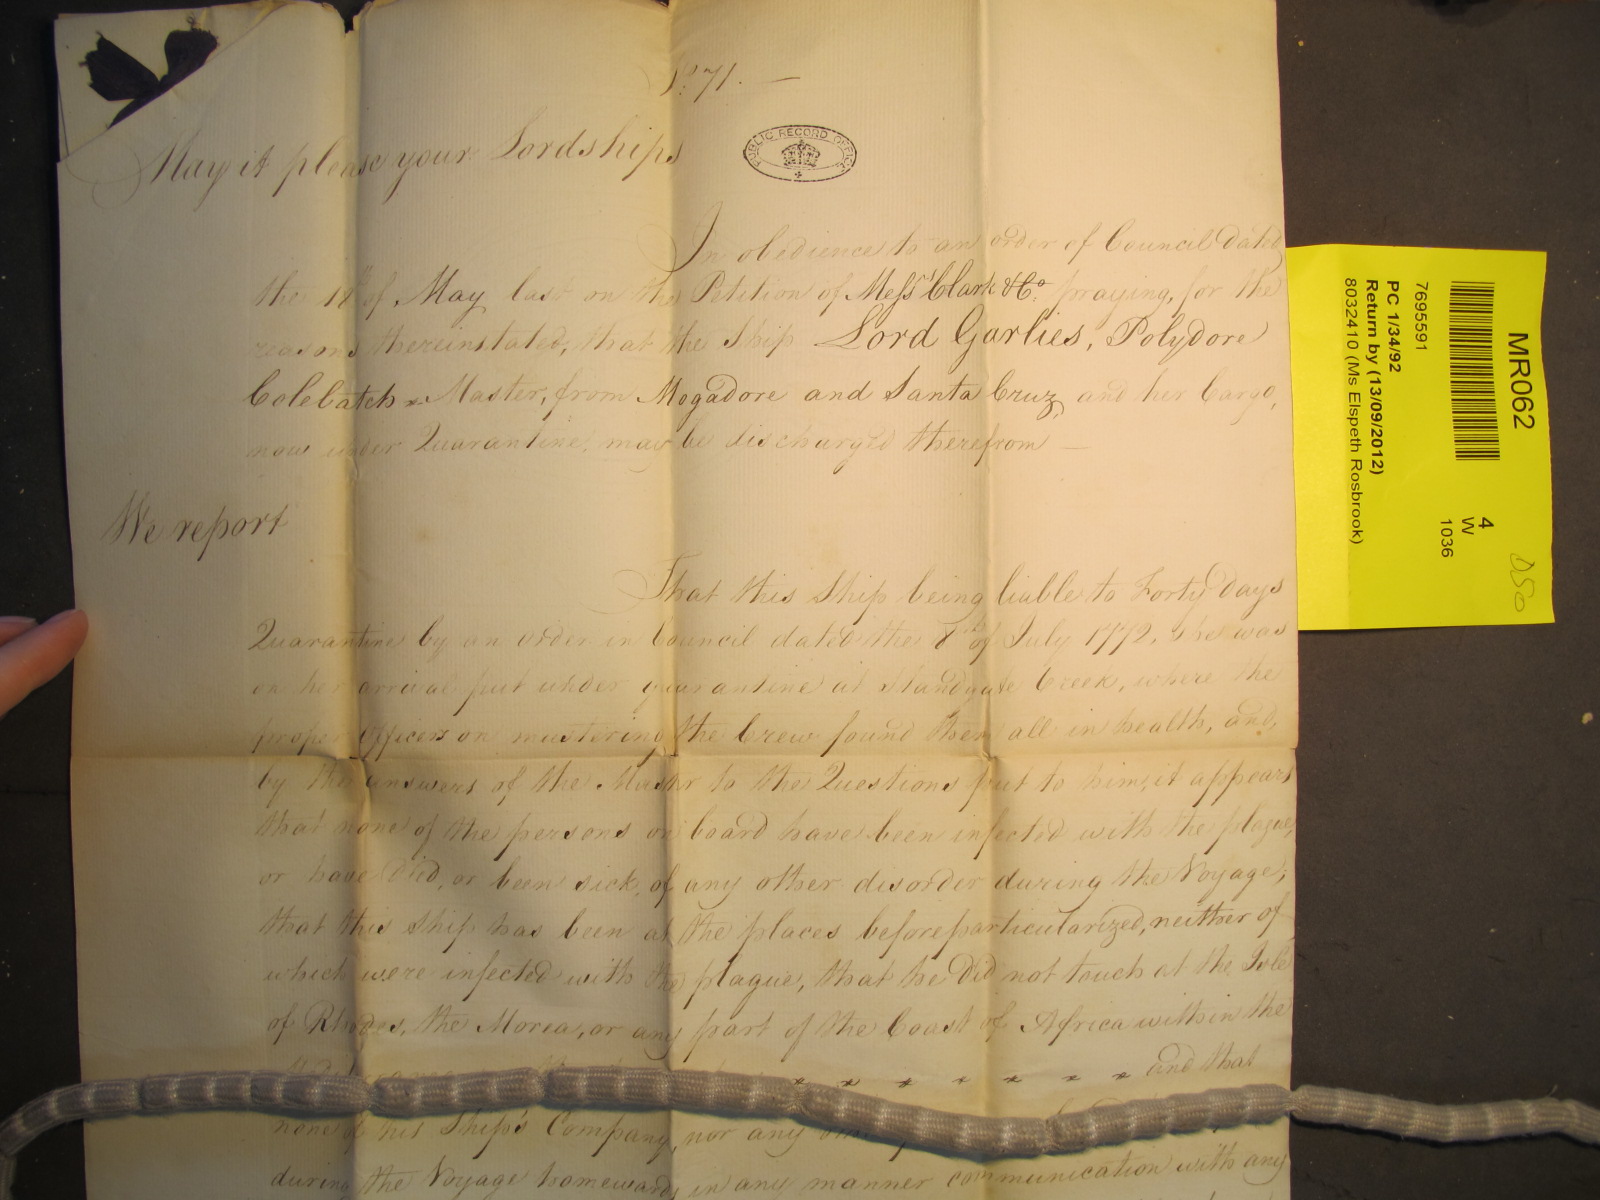 No. 71. —
May it please your Lordships
PUBLIC RECORD OFFICE
In obedience to an order of Council dated
the of May last on the Petition of Messrs Clark & Co. praying, for the
reasons therein stated, that the Ship Lord Garlies, Polydore
Colebatch Master, from Mogadore and Santa Cruz, and her Cargo,
now under Quarantine, may be discharged therefrom —
We report
That this Ship being liable to Forty Days
Quarantine by an order in Council dated the of July 1772, she was
on her arrival put under quarantine at Standgate Creek, where the
proper Officers on mustering the Crew found them all in health, and,
by the answers of the Master to the Questions put to him, it appears
that none of the persons on board have been infected with the plague,
or have died, or been sick, of any other disorder during the Voyage;
that this Ship has been at the places before particularized, neither of
which were infected with the plague, that he did not touch at the Isle
of Rhodes, the Morea, or any part of the Coast of Africa within the
and that
none of his Ship's Company, nor any
during the Voyage homewards in any manner communication with any
MR062
4
W
1036
DSO
7695591
PC 1/34/92
Return by (13/09/2012)
8032410 (Ms Elspeth Rosbrook)